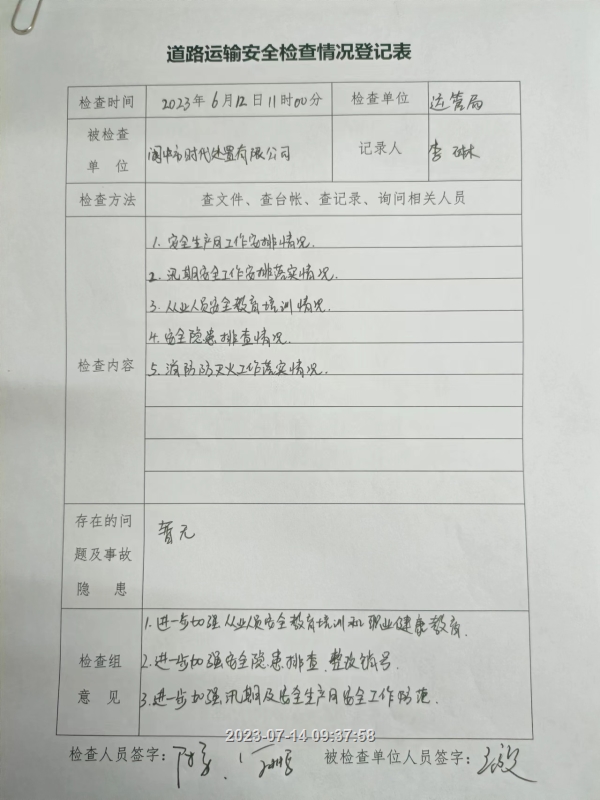 道路运输安全检查情况登记表
检查时间 2023年6月12日11时00分 检查单位 运管局
被检查单位 阆中市时代处置有限公司 记录人 李
检查方法 查文件、查台帐、查记录、询问相关人员
检查内容
1. 安全生产月工作安排情况.
2. 汛期安全工作安排落实情况.
3. 从业人员安全教育培训情况.
4. 安全隐患排查情况.
5. 消防防灭火工作落实情况.
存在的问
题及事故
隐 患
暂无
检查组
意 见
1. 进一步加强从业人员安全教育培训和职业健康教育.
2. 进一步加强安全隐患排查、整改销号.
3. 进一步加强汛期及安全生产月安全工作防范.
2023-07-14 09:37:58
检查人员签字: 被检查单位人员签字: